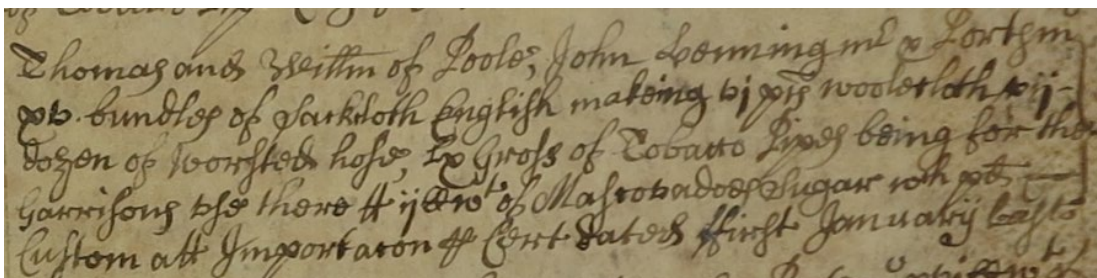 Thomas and Willm of Poole, John Venning mr p Porthm
xv. bundles of Sackcloth English makeing vj ps woolecloth xij
dozen of worsted hose, lx Gross of Tobacco Pipes being for the
Garrisons vse there # ij of Mascovadoes Sugar wch pd
Custom att Importacon # Cert dated ffirst January last